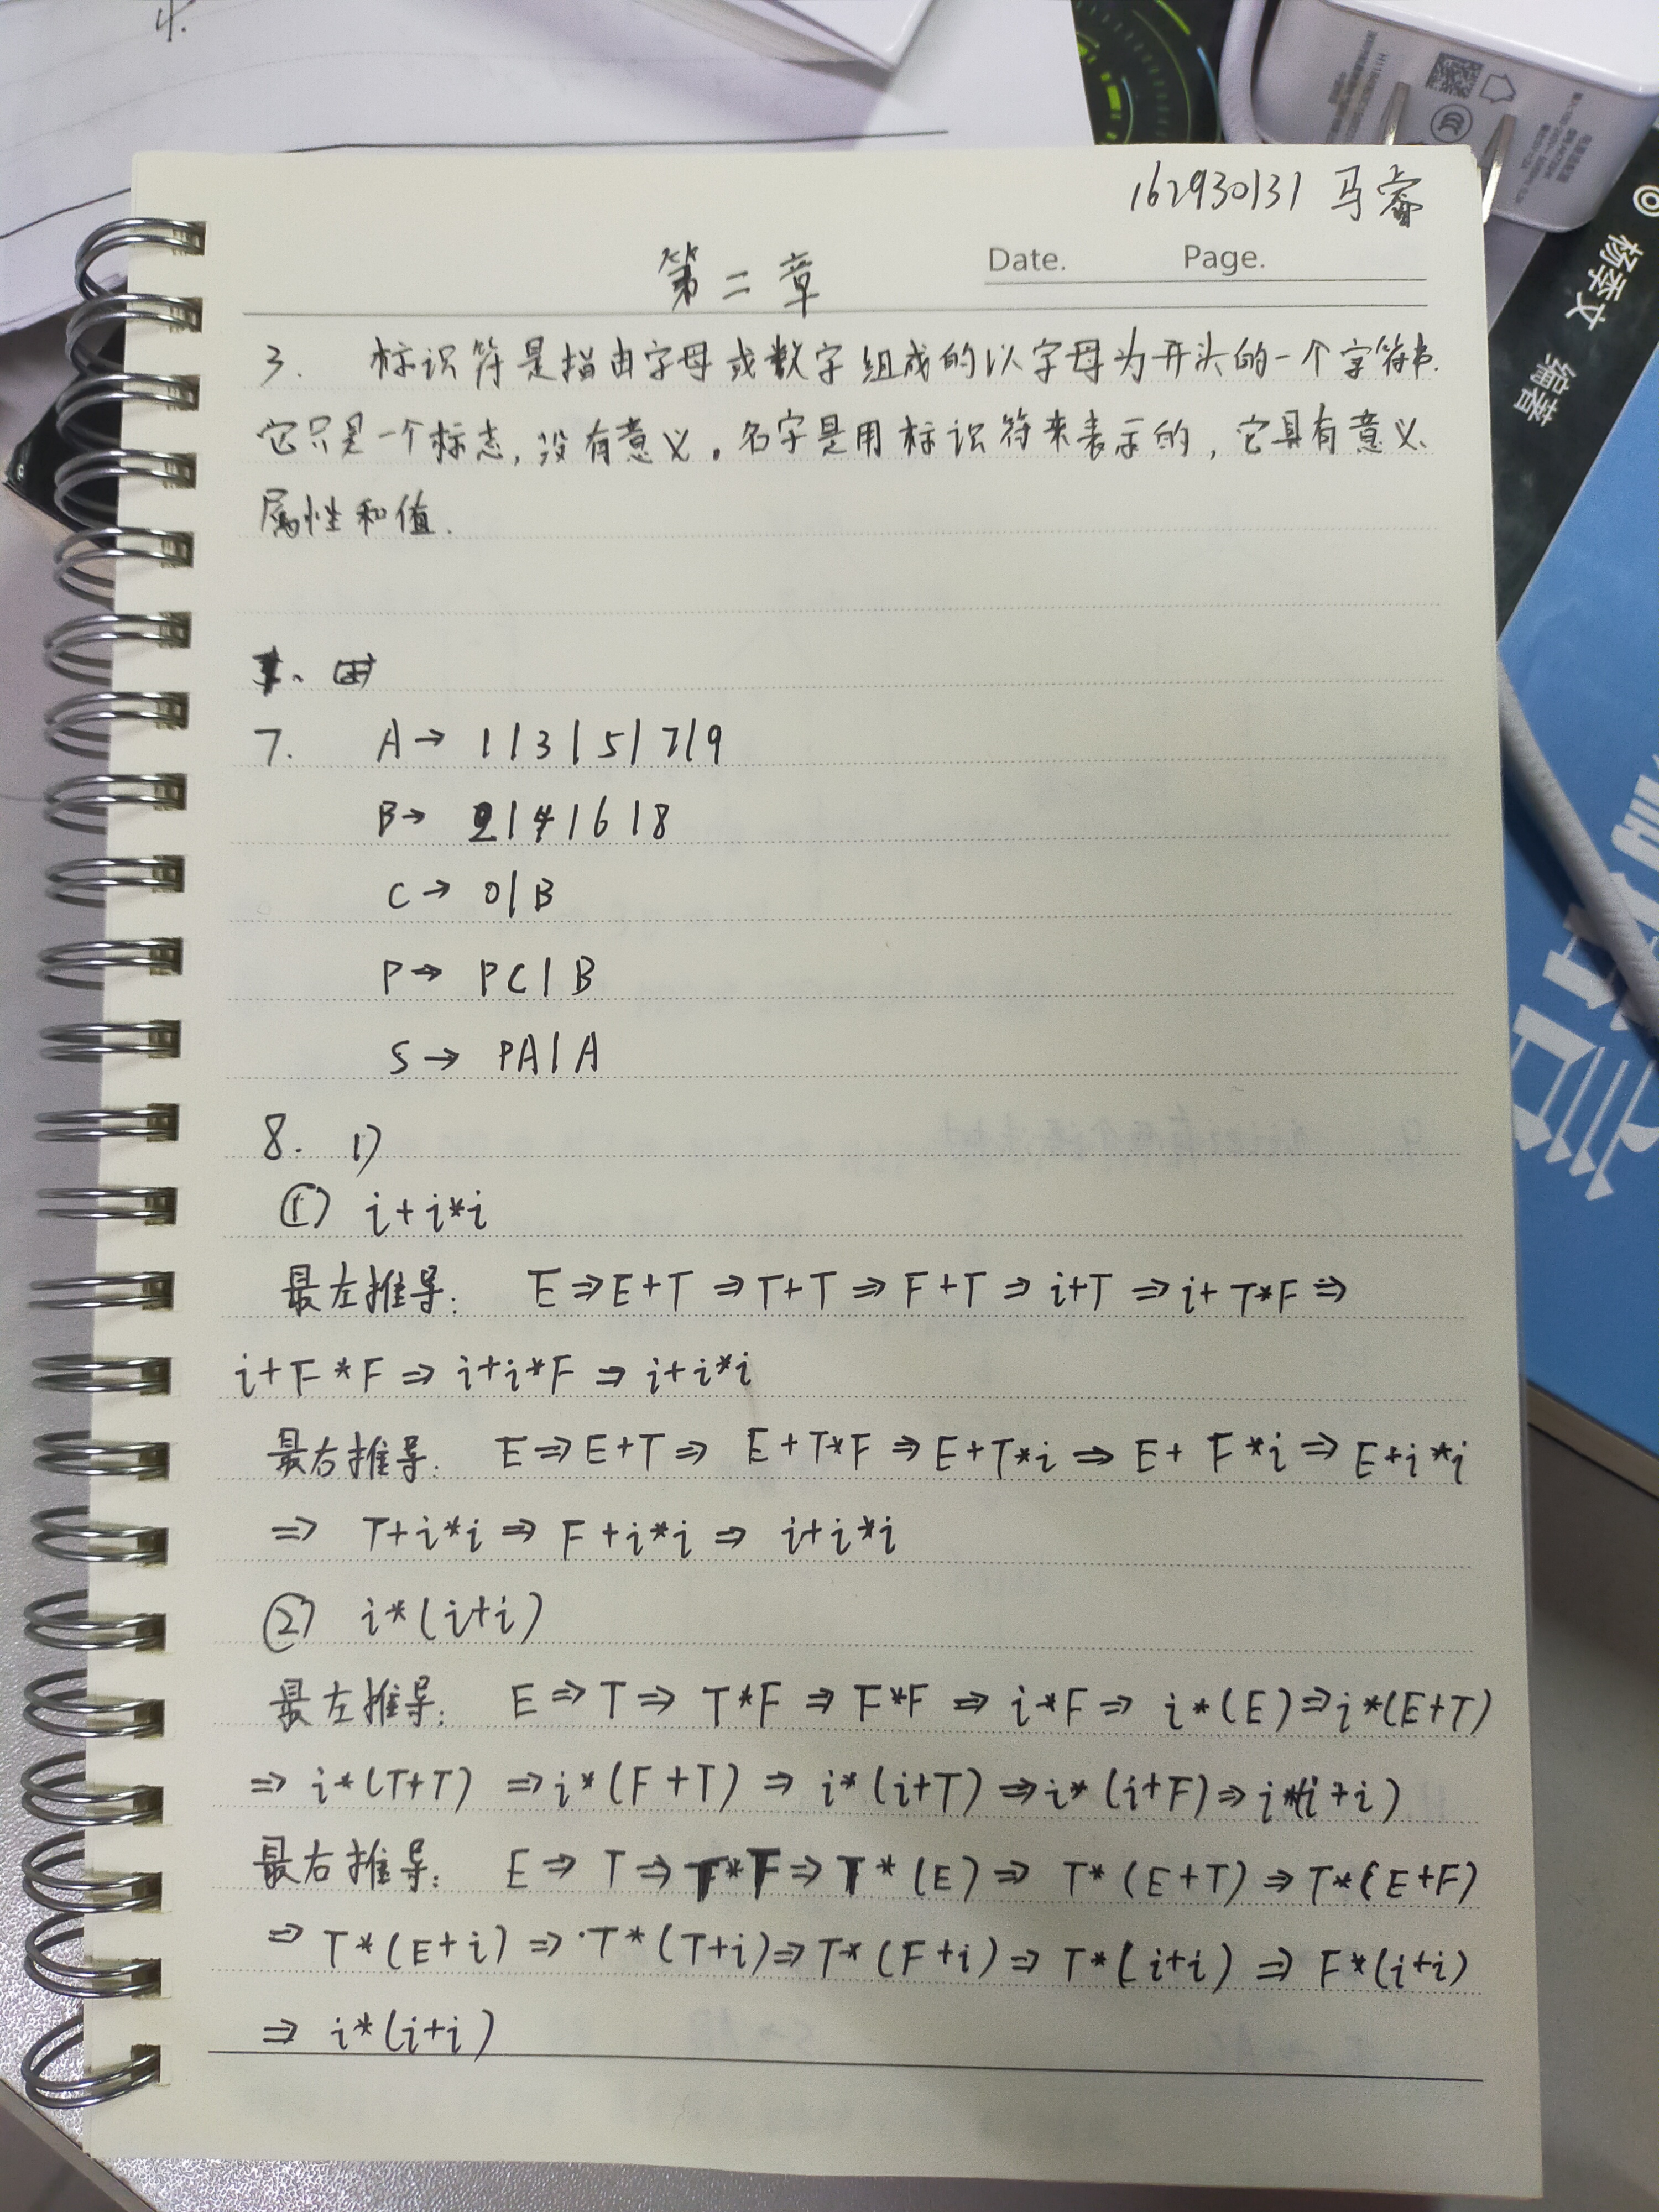 4.
162930131 马睿
Date. Page.
第二章
3. 标识符是指由字母或数字组成的以字母为开头的一个字符串.
它只是一个标志,没有意义。名字是用标识符来表示的,它具有意义、
属性和值.
7. A→ 1|3|5|7|9
B→ 2|4|6|8
C→ 0|B
P→ PC|B
S→ PA|A
8. 1)
① i+i*i
最左推导: E⇒E+T⇒T+T⇒F+T⇒i+T⇒i+T*F⇒
i+F*F⇒i+i*F⇒i+i*i
最右推导: E⇒E+T⇒E+T*F⇒E+T*i⇒E+F*i⇒E+i*i
⇒T+i*i⇒F+i*i⇒i+i*i
② i*(i+i)
最左推导: E⇒T⇒T*F⇒F*F⇒i*F⇒i*(E)⇒i*(E+T)
⇒i*(T+T)⇒i*(F+T)⇒i*(i+T)⇒i*(i+F)⇒i*(i+i)
最右推导: E⇒T⇒T*F⇒T*(E)⇒T*(E+T)⇒T*(E+F)
⇒T*(E+i)⇒T*(T+i)⇒T*(F+i)⇒T*(i+i)⇒F*(i+i)
⇒i*(i+i)
杨季文 编著